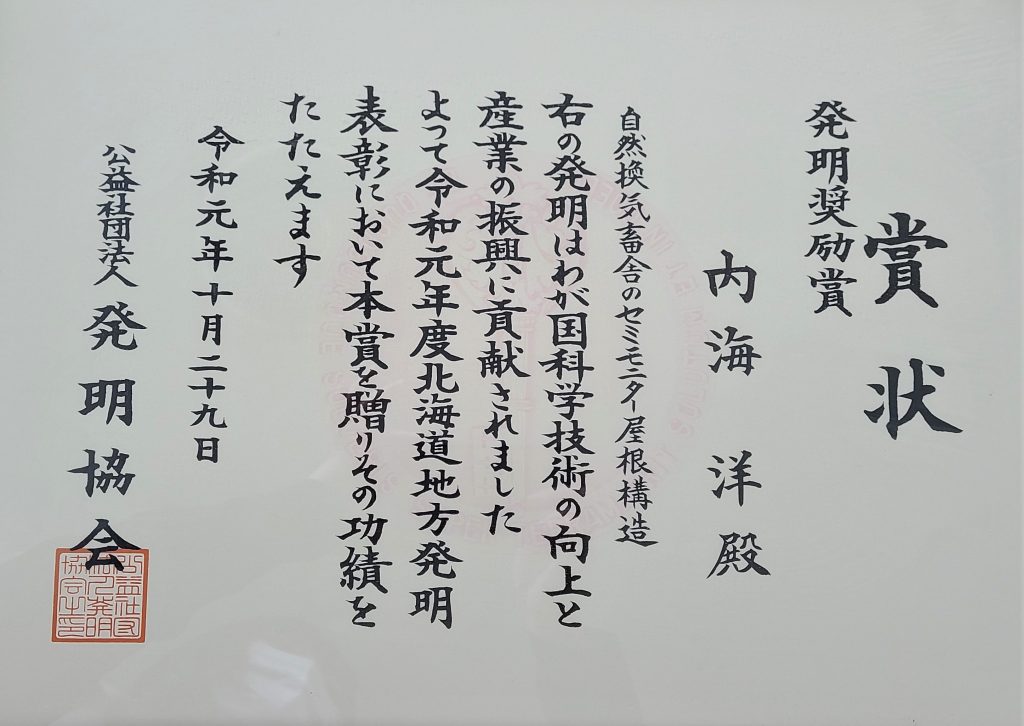 賞状
発明奨励賞
内海洋殿
自然換気畜舎のセミモニター屋根構造
右の発明はわが国科学技術の向上と
産業の振興に貢献されました
よって令和元年度北海道地方発明
表彰において本賞を贈りその功績を
たたえます
令和元年十月二十九日
公益社団法人発明協会